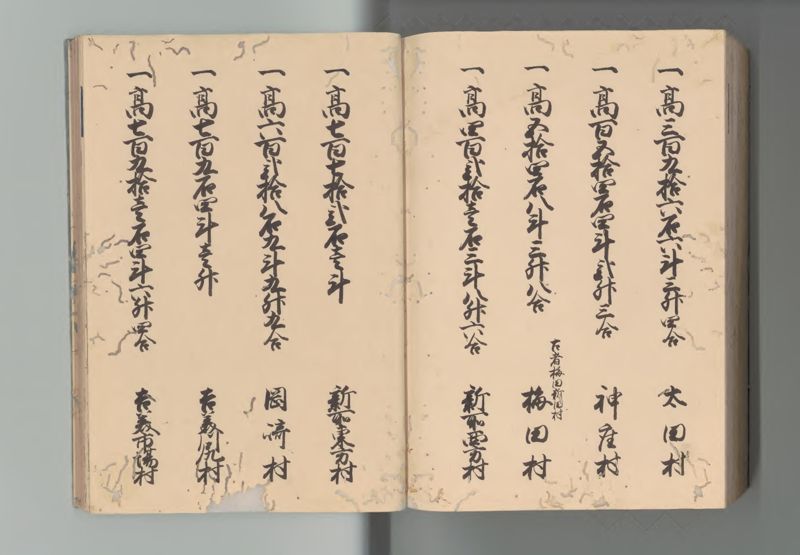 一高三百九拾六石六斗三升四合 太田村
一高百五拾四石四斗弐升三合 神座村
一高五拾四石八斗三升八合 梅田村
古者梅田新田村
一高四百弐拾壱石三斗八升六合 新所西方村
一高七百七拾弐石壱斗 新所東方村
一高六百弐拾八石九斗九升九合 岡崎村
一高七百九石四斗壱升 吉美尻村
一高七百九拾壱石四斗六升四合 吉美市場村